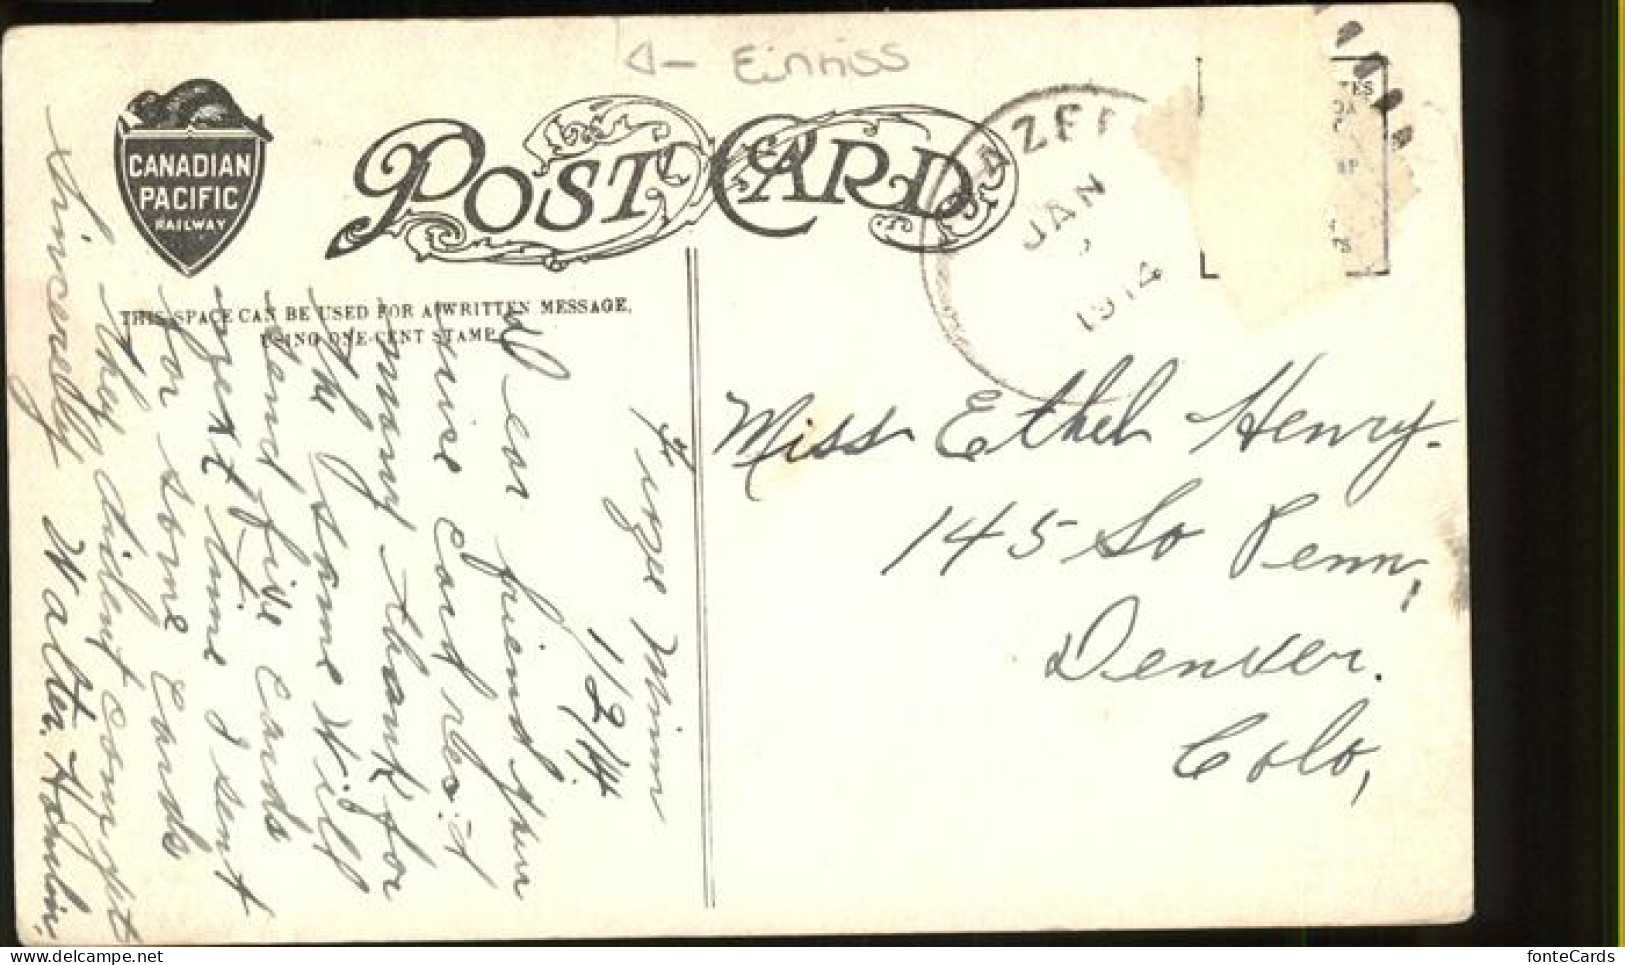 Einriss
CANADIAN
PACIFIC
RAILWAY
POST CARD
AZEL
JAN
1914
THIS SPACE CAN BE USED FOR A WRITTEN MESSAGE,
USING ONE-CENT STAMP.
Minn
1/2/14.
friend your
nice card rec.d
many thanks for
the same. Will
send five cards
next time I sent
for some cards
they dident com yet
Sincerely Walter. Homlin.
Miss Ethel Henry.
145 So Penn,
Denver.
Colo,
fonteCards